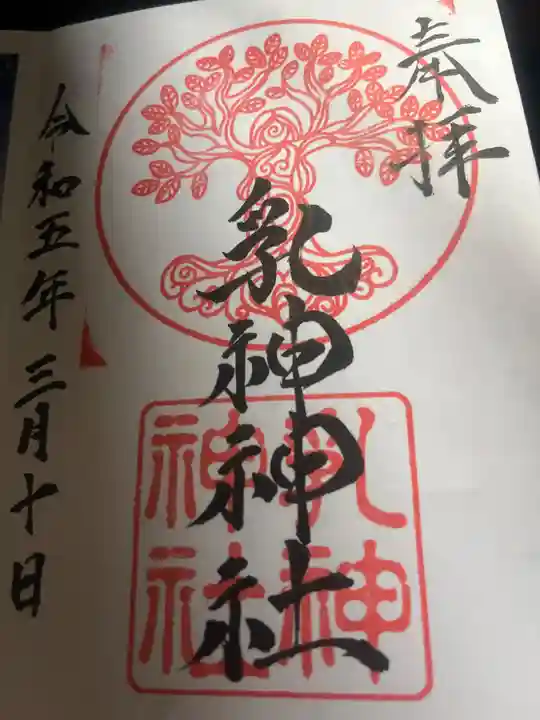 奉拝
乳神神社
乳神
神社
令和五年三月十日